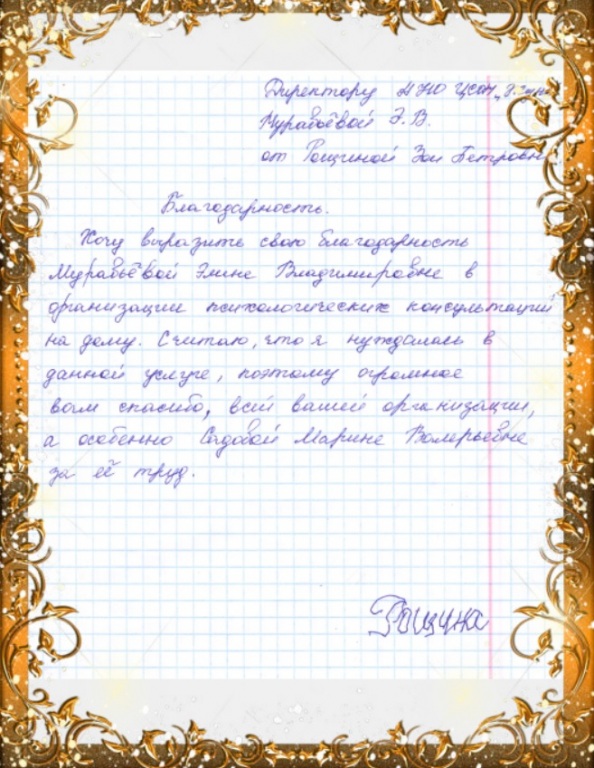 Директору АНО ЦСОН
Мурабьёвой Э.В.
от Рощиной Зои Петровны
Благодарность.
Хочу выразить свою благодарность
Мурабьёвой Элине Владимировне в
организации психологических консультаций
на дому. Считаю, что я нуждалась в
данной услуге, поэтому огромное
вам спасибо, всей вашей организации,
а особенно Садовой Марине Валерьевне
за её труд.
Рощина